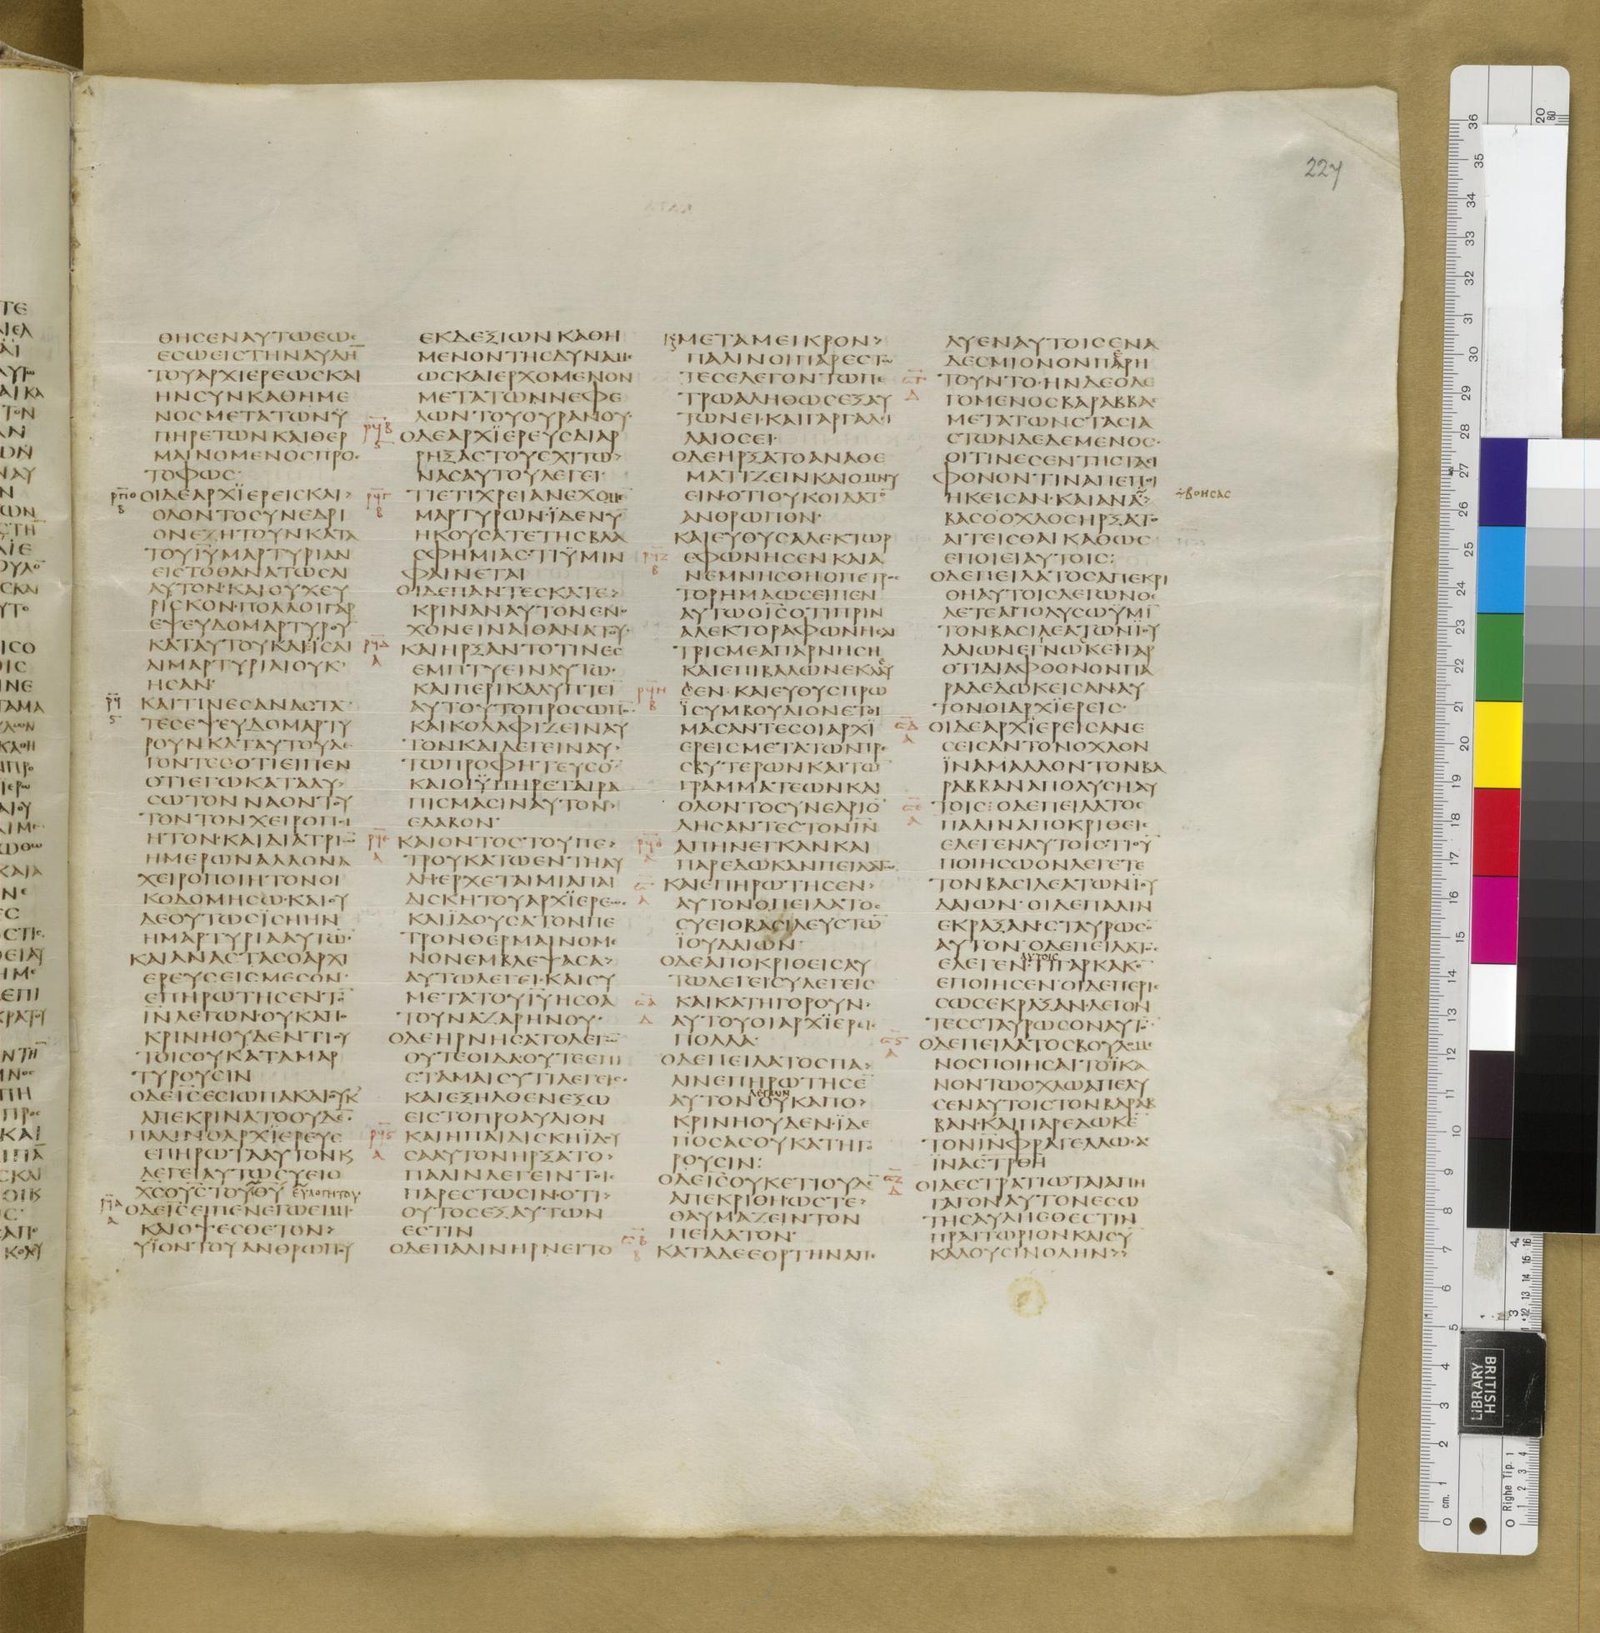 227
ΘΗϹΕΝΑΥΤΩΕΩϹ
ΕϹΩΕΙϹΤΗΝΑΥΛΗ̄
ΤΟΥΑΡΧΙΕΡΕΩϹΚΑΙ
ΗΝϹΥΝΚΑΘΗΜΕ
ΝΟϹΜΕΤΑΤΩΝΥ
ΠΗΡΕΤΩΝΚΑΙΘΕΡ
ΜΑΙΝΟΜΕΝΟϹΠΡΟϹ
ΤΟΦΩϹ·
ΟΙΔΕΑΡΧΪΕΡΕΙϹΚΑΙ>
ΟΛΟΝΤΟϹΥΝΕΔΡΙ
ΟΝΕΖΗΤΟΥΝΚΑΤΑ
ΤΟΥΙ̅Υ̅ΜΑΡΤΥΡΙΑΝ
ΕΙϹΤΟΘΑΝΑΤΩϹΑΙ
ΑΥΤΟΝ·ΚΑΙΟΥΧΕΥ
ΡΙϹΚΟΝ·ΠΟΛΛΟΙΓΑΡ
ΕΨΕΥΔΟΜΑΡΤΥΡΟΥ̅
ΚΑΤΑΥΤΟΥΚΑΙΪϹΑΙ
ΑΙΜΑΡΤΥΡΙΑΙΟΥΚ·
ΗϹΑΝ·
ΚΑΙΤΙΝΕϹΑΝΑϹΤΑ̅
ΤΕϹΕΨΕΥΔΟΜΑΡΤΥ
ΡΟΥΝΚΑΤΑΥΤΟΥΛΕ
ΓΟΝΤΕϹΟΤΙΕΙΠΕΝ
ΟΤΙΕΓΩΚΑΤΑΛΥ>
ϹΩΤΟΝΝΑΟΝΤΟΥ
ΤΟΝΤΟΝΧΕΙΡΟΠΟΙ
ΗΤΟΝ·ΚΑΙΔΙΑΤΡΙΩ̅
ΗΜΕΡΩΝΑΛΛΟΝΑ
ΧΕΙΡΟΠΟΙΗΤΟΝΟΙ
ΚΟΔΟΜΗϹΩ·ΚΑΙΟΥ
ΔΕΟΥΤΩϹΪϹΗΗΝ
ΗΜΑΡΤΥΡΙΑΑΥΤΩ̅·
ΚΑΙΑΝΑϹΤΑϹΟΑΡΧΙ
ΕΡΕΥϹΕΙϹΜΕϹΟΝ·
ΕΠΗΡΩΤΗϹΕΝΤΟ̅
Ι̅Ν̅ΛΕΓΩΝ·ΟΥΚΑΠΟ
ΚΡΙΝΗΟΥΔΕΝΤΙΟΥ
ΤΟΙϹΟΥΚΑΤΑΜΑΡ
ΤΥΡΟΥϹΙΝ
ΟΔΕΙ̅Ϲ̅ΕϹΙΩΠΑΚΑΙΟΥΚ
ΑΠΕΚΡΙΝΑΤΟΟΥΔΕ̅·
ΠΑΛΙΝΟΑΡΧΪΕΡΕΥϹ
ΕΠΗΡΩΤΑΑΥΤΟΝΚ
ΛΕΓΕΙΑΥΤΩϹΥΕΙΟ
Χ̅Ϲ̅ΟΥϹΤΟΥΘ̅Υ̅ ΕΥΛΟΓΗΤΟΥ
ΟΔΕΙ̅Ϲ̅ΕΙΠΕΝΕΓΩΕΙΜΙ·
ΚΑΙΟΨΕϹΘΕΤΟΝ>
ΥΪΟΝΤΟΥΑΝΘΡΩΠΟΥ
ΕΚΔΕΞΙΩΝΚΑΘΗ
ΜΕΝΟΝΤΗϹΔΥΝΑΜΕ
ΩϹΚΑΙΕΡΧΟΜΕΝΟΝ
ΜΕΤΑΤΩΝΝΕΦΕ
ΛΩΝΤΟΥΟΥΡΑΝΟΥ·
ΟΔΕΑΡΧΪΕΡΕΥϹΔΙΑΡ
ΡΗΞΑϹΤΟΥϹΧΙΤΩ>
ΝΑϹΑΥΤΟΥΛΕΓΕΙ·
ΤΙΕΤΙΧΡΕΙΑΝΕΧΟΜΕ̅
ΜΑΡΤΥΡΩΝ·ΪΔΕΝΥ̅
ΗΚΟΥϹΑΤΕΤΗϹΒΛΑ
ϹΦΗΜΙΑϹ·ΤΙΫΜΙΝ
ΦΑΙΝΕΤΑΙ
ΟΙΔΕΠΑΝΤΕϹΚΑΤΕ>
ΚΡΙΝΑΝΑΥΤΟΝΕΝΟ
ΧΟΝΕΙΝΑΙΘΑΝΑΤΟΥ·
ΚΑΙΗΡΞΑΝΤΟΤΙΝΕϹ
ΕΜΠΤΥΕΙΝΑΥΤΩ·
ΚΑΙΠΕΡΙΚΑΛΥΠΤΕΙ̅
ΑΥΤΟΥΤΟΠΡΟϹΩΠΟ̅
ΚΑΙΚΟΛΑΦΙΖΕΙΝΑΥ
ΤΟΝΚΑΙΛΕΓΕΙΝΑΥ>
ΤΩΠΡΟΦΗΤΕΥϹΟ̅·
ΚΑΙΟΙΫΠΗΡΕΤΑΙΡΑ
ΠΙϹΜΑϹΙΝΑΥΤΟΝ>
ΕΛΑΒΟΝ·
ΚΑΙΟΝΤΟϹΤΟΥΠΕ>
ΤΡΟΥΚΑΤΩΕΝΤΗΑΥ
ΛΗΕΡΧΕΤΑΙΜΙΑΠΑΙ
ΔΙϹΚΗΤΟΥΑΡΧΪΕΡΕΩϹ·
ΚΑΙΪΔΟΥϹΑΤΟΝΠΕ
ΤΡΟΝΘΕΡΜΑΙΝΟΜΕ
ΝΟΝΕΜΒΛΕΨΑϹΑ>
ΑΥΤΩΛΕΓΕΙ·ΚΑΙϹΥ
ΜΕΤΑΤΟΥΙ̅Υ̅ΗϹΘΑ
ΤΟΥΝΑΖΑΡΗΝΟΥ·
ΟΔΕΗΡΝΗϹΑΤΟΛΕΓΩ̅
ΟΥΤΕΟΙΔΑ·ΟΥΤΕΕΠΙ
ϹΤΑΜΑΙϹΥΤΙΛΕΓΕΙϹ·
ΚΑΙΕΞΗΛΘΕΝΕΞΩ
ΕΙϹΤΟΠΡΟΑΥΛΙΟΝ
ΚΑΙΗΠΑΙΔΙϹΚΗΪΔΟΥ
ϹΑΑΥΤΟΝΗΡΞΑΤΟ>
ΠΑΛΙΝΛΕΓΕΙΝΤΟΙϹ
ΠΑΡΕϹΤΩϹΙΝ·ΟΤΙ>
ΟΥΤΟϹΕΞΑΥΤΩΝ
ΕϹΤΙΝ
ΟΔΕΠΑΛΙΝΗΡΝΕΙΤΟ
ΚϚΜΕΤΑΜΕΙΚΡΟΝ>
ΠΑΛΙΝΟΙΠΑΡΕϹΤΩ
ΤΕϹΕΛΕΓΟΝΤΩΠΕ
ΤΡΩΑΛΗΘΩϹΕΞΑΥ
ΤΩΝΕΙ·ΚΑΙΓΑΡΓΑΛΙ
ΛΑΙΟϹΕΙ·
ΟΔΕΗΡΞΑΤΟΑΝΑΘΕ
ΜΑΤΙΖΕΙΝΚΑΙΟΜΝΥ
ΕΙΝ·ΟΤΙΟΥΚΟΙΔΑΤΟ̅
ΑΝΘΡΩΠΟΝ·
ΚΑΙΕΥΘΥϹΑΛΕΚΤΩΡ
ΕΦΩΝΗϹΕΝΚΑΙΑ
ΝΕΜΝΗϹΘΗΟΠΕΤΡΟϹ
ΤΟΡΗΜΑΩϹΕΙΠΕΝ
ΑΥΤΩΟΙ̅Ϲ̅ΟΤΙΠΡΙΝ
ΑΛΕΚΤΟΡΑΦΩΝΗϹΑΙ
ΤΡΙϹΜΕΑΠΑΡΝΗϹΗ
ΚΑΙΕΠΙΒΑΛΩΝΕΚΛΑΥ
ϹΕΝ·ΚΑΙΕΥΘΥϹΠΡΩ
ΪϹΥΜΒΟΥΛΙΟΝΕΤΟΙ
ΜΑϹΑΝΤΕϹΟΙΑΡΧΪ
ΕΡΕΙϹΜΕΤΑΤΩΝΠΡΕ
ϹΒΥΤΕΡΩΝΚΑΙΤΩ̅
ΓΡΑΜΜΑΤΕΩΝΚΑΙ
ΟΛΟΝΤΟϹΥΝΕΔΡΙΟ̅
ΔΗϹΑΝΤΕϹΤΟΝΙ̅Ν̅
ΑΠΗΝΕΓΚΑΝΚΑΙ
ΠΑΡΕΔΩΚΑΝΠΕΙΛΑΤΩ
ΚΑΙΕΠΗΡΩΤΗϹΕΝ>
ΑΥΤΟΝΟΠΕΙΛΑΤΟϹ
ϹΥΕΙΟΒΑϹΙΛΕΥϹΤΩ̅
ΪΟΥΔΑΙΩΝ·
ΟΔΕΑΠΟΚΡΙΘΕΙϹΑΥ
ΤΩΛΕΓΕΙϹΥΛΕΓΕΙϹ
ΚΑΙΚΑΤΗΓΟΡΟΥΝ·
ΑΥΤΟΥΟΙΑΡΧΪΕΡΕΙϹ
ΠΟΛΛΑ·
ΟΔΕΠΕΙΛΑΤΟϹΠΑ>
ΛΙΝΕΠΗΡΩΤΗϹΕ̅
ΛΕΓΩΝ
ΑΥΤΟΝΟΥΚΑΠΟ>
ΚΡΙΝΗΟΥΔΕΝ·ΪΔΕ
ΠΟϹΑϹΟΥΚΑΤΗΓΟ
ΡΟΥϹΙΝ:
ΟΔΕΙ̅Ϲ̅ΟΥΚΕΤΙΟΥΔΕ̅
ΑΠΕΚΡΙΘΗΩϹΤΕ>
ΘΑΥΜΑΖΕΙΝΤΟΝ
ΠΕΙΛΑΤΟΝ·
ΚΑΤΑΔΕΕΟΡΤΗΝΑΠΕ
ΛΥΕΝΑΥΤΟΙϹΕΝΑ
ΔΕϹΜΙΟΝΟΝΠΑΡΗ
ΤΟΥΝΤΟ·ΗΝΔΕΟΛΕ
ΓΟΜΕΝΟϹΒΑΡΑΒΒΑϹ
ΜΕΤΑΤΩΝϹΤΑϹΙΑ
ϹΤΩΝΔΕΔΕΜΕΝΟϹ·
ΟΙΤΙΝΕϹΕΝΤΗϹΤΑϹΙ
ΦΟΝΟΝΤΙΝΑΠΕΠΟΙ
ΗΚΕΙϹΑΝ·ΚΑΙΑΝΑ> ΒΟΗϹΑϹ
ΒΑϹΟΟΧΛΟϹΗΡΞΑΤΟ
ΑΙΤΕΙϹΘΑΙΚΑΘΩϹ
ΕΠΟΙΕΙΑΥΤΟΙϹ:
ΟΔΕΠΕΙΛΑΤΟϹΑΠΕΚΡΙ
ΘΗΑΥΤΟΙϹΛΕΓΩΝΘΕ
ΛΕΤΕΑΠΟΛΥϹΩΫΜΙ̅
ΤΟΝΒΑϹΙΛΕΑΤΩΝΪΟΥ
ΔΑΙΩΝΕΓΝΩΚΕΙΓΑΡ
ΟΤΙΔΙΑΦΘΟΝΟΝΠΑ
ΡΑΔΕΔΩΚΕΙϹΑΝΑΥ
ΤΟΝΟΙΑΡΧΪΕΡΕΙϹ·
ΟΙΔΕΑΡΧΪΕΡΕΙϹΑΝΕ
ϹΕΙϹΑΝΤΟΝΟΧΛΟΝ
ΪΝΑΜΑΛΛΟΝΤΟΝΒΑ
ΡΑΒΒΑΝΑΠΟΛΥϹΗΑΥ
ΤΟΙϹ:ΟΔΕΠΕΙΛΑΤΟϹ
ΠΑΛΙΝΑΠΟΚΡΙΘΕΙϹ
ΕΛΕΓΕΝΑΥΤΟΙϹ·ΤΙΟΥ̅
ΠΟΙΗϹΩΟΝΛΕΓΕΤΕ
ΤΟΝΒΑϹΙΛΕΑΤΩΝΪΟΥ
ΔΑΙΩΝ·ΟΙΔΕΠΑΛΙΝ
ΕΚΡΑΞΑΝ·ϹΤΑΥΡΩϹΟ̅
ΑΥΤΟΝ·ΟΔΕΠΕΙΛΑΤΟϹ
ΑΥΤΟΙϹ
ΕΛΕΓΕΝ·ΤΙΓΑΡΚΑΚΟ̅
ΕΠΟΙΗϹΕΝ·ΟΙΔΕΠΕΡΙϹ
ϹΩϹΕΚΡΑΞΑΝ·ΛΕΓΟΝ
ΤΕϹϹΤΑΥΡΩϹΟΝΑΥΤΟ̅
ΟΔΕΠΕΙΛΑΤΟϹΒΟΥΛΟΜΕ
ΝΟϹΠΟΙΗϹΑΙΤΟΪΚΑ
ΝΟΝΤΩΟΧΛΩΑΠΕΛΥ
ϹΕΝΑΥΤΟΙϹΤΟΝΒΑΡΑΒ
ΒΑΝ·ΚΑΙΠΑΡΕΔΩΚΕ̅
ΤΟΝΙ̅Ν̅ΦΡΑΓΕΛΛΩϹΑϹ
ΪΝΑϹΤΡΘΗ
ΟΙΔΕϹΤΡΑΤΙΩΤΑΙΑΠΗ
ΓΑΓΟΝΑΥΤΟΝΕϹΩ
ΤΗϹΑΥΛΗϹΟΕϹΤΙΝ
ΠΡΑΙΤΩΡΙΟΝΚΑΙϹΥ̅
ΚΑΛΟΥϹΙΝΟΛΗΝ>>
BRITISH
LIBRARY